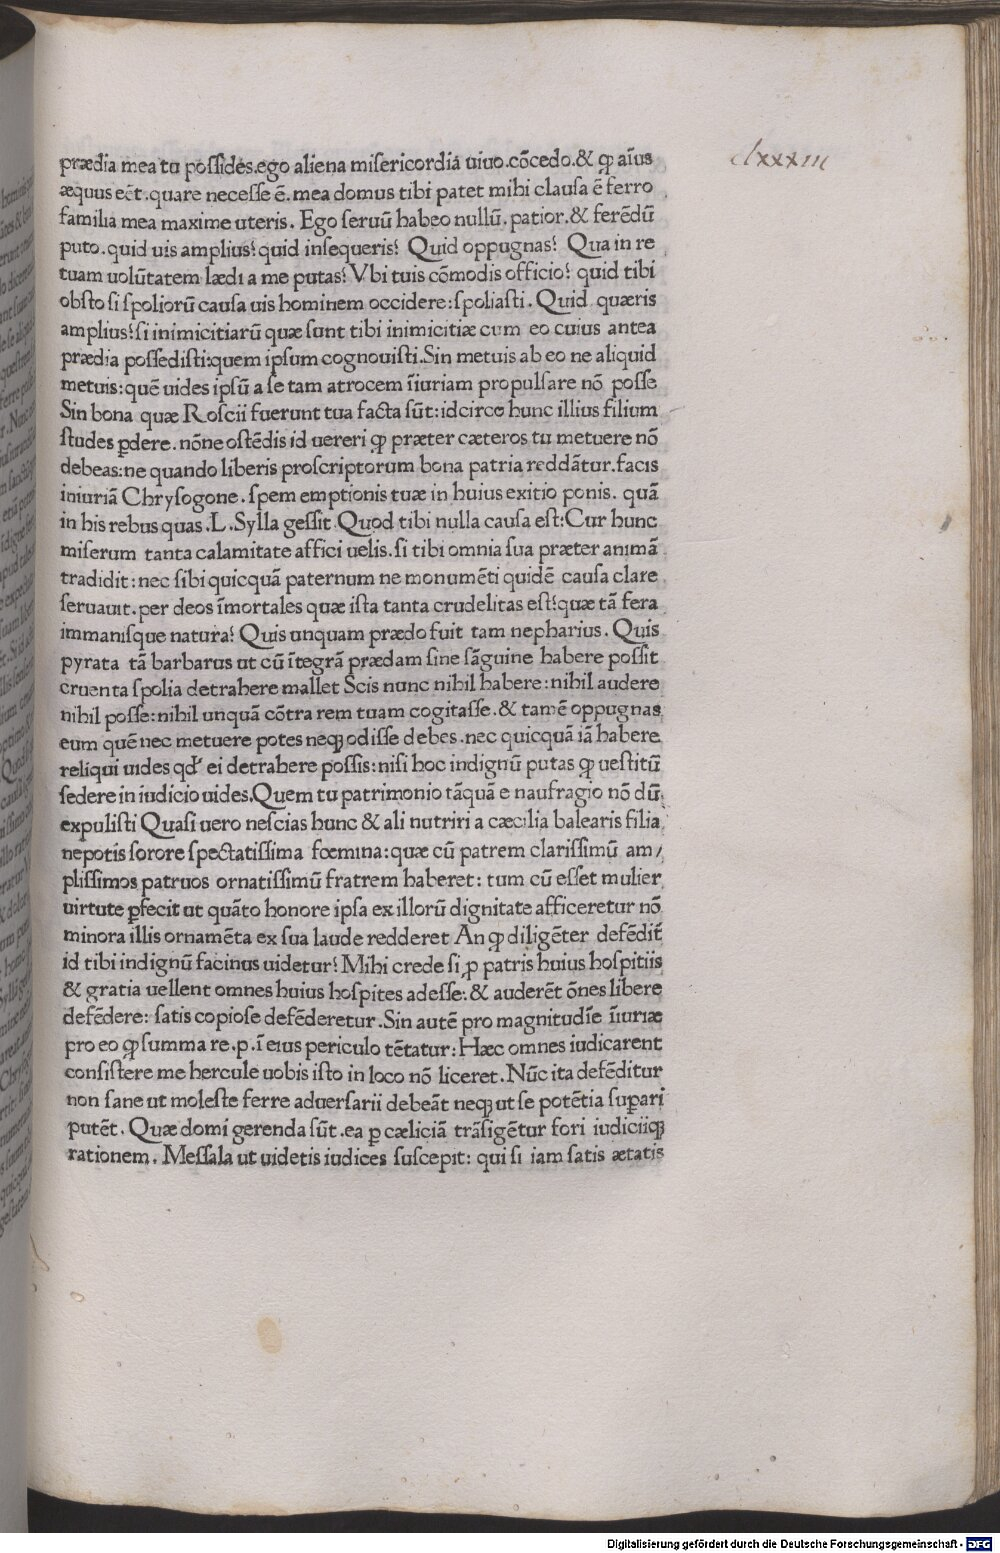 clxxxiii
prædia mea tu possides.ego aliena misericordia uiuo.cōcedo.& ꝙ aīus
æquus eēt.quare necesse ē.mea domus tibi patet mihi clausa ē ferro
familia mea maxime uteris. Ego seruū habeo nullū.patior.& ferēdū
puto.quid uis amplius? quid insequeris? Quid oppugnas? Qua in re
tuam uolūtatem lædi a me putas? Vbi tuis cōmodis officio? quid tibi
obsto si spoliorū causa uis hominem occidere:spoliasti.Quid quæris
amplius?si inimicitiarū quæ sunt tibi inimicitiæ cum eo cuius antea
prædia possedisti:quem ipsum cognouisti.Sin metuis ab eo ne aliquid
metuis:quē uides ipsū a se tam atrocem īiuriam propulsare nō posse
Sin bona quæ Roscii fuerunt tua facta sūt:idcirco hunc illius filium
studes ꝑdere.nōne ostēdis id uereri ꝙ præter cæteros tu metuere nō
debeas:ne quando liberis proscriptorum bona patria reddātur.facis
iniuriā Chrysogone.spem emptionis tuæ in huius exitio ponis. quā
in his rebus quas.L.Sylla gessit.Quod tibi nulla causa est:Cur hunc
miserum tanta calamitate affici uelis.si tibi omnia sua præter animā
tradidit:nec sibi quicquā paternum ne monumēti quidē causa clare
seruauit.per deos īmortales quæ ista tanta crudelitas est?quæ tā fera
immanisque natura? Quis unquam prædo fuit tam nepharius. Quis
pyrata tā barbarus ut cū ītegrā prædam sine sāguine habere possit
cruenta spolia detrahere mallet Scis nunc nihil habere:nihil audere
nihil posse:nihil unquā cōtra rem tuam cogitasse.& tamē oppugnas
eum quē nec metuere potes neqꝫ odisse debes.nec quicquā iā habere
reliqui uides qđ ei detrahere possis:nisi hoc indignū putas ꝙ uestitū
sedere in iudicio uides.Quem tu patrimonio tāquā e naufragio nō dū
expulisti Quasi uero nescias hunc & ali nutriri a cæcilia balearis filia
nepotis sorore spectatissima fœmina:quæ cū patrem clarissimū am/
plissimos patruos ornatissimū fratrem haberet: tum cū esset mulier
uirtute ꝑfecit ut quāto honore ipsa ex illorū dignitate afficeretur nō
minora illis ornamēta ex sua laude redderet An ꝙ diligēter defēdit
id tibi indignū facinus uidetur? Mihi crede si ꝓ patris huius hospitiis
& gratia uellent omnes huius hospites adesse:& auderēt ōnes libere
defēdere: satis copiose defēderetur.Sin autē pro magnitudīe īiuriæ
pro eo ꝙ summa re.p.ī eius periculo tētatur:Hæc omnes iudicarent
consistere me hercule uobis isto in loco nō liceret.Nūc ita defēditur
non sane ut moleste ferre aduersarii debeāt neqꝫ ut se potētia suꝑari
putēt. Quæ domi gerenda sūt.ea ꝑ cæliciā trāsigētur fori iudiciiqꝫ
rationem. Messala ut uidetis iudices suscepit: qui si iam satis ætatis
Digitalisierung gefördert durch die Deutsche Forschungsgemeinschaft - DFG